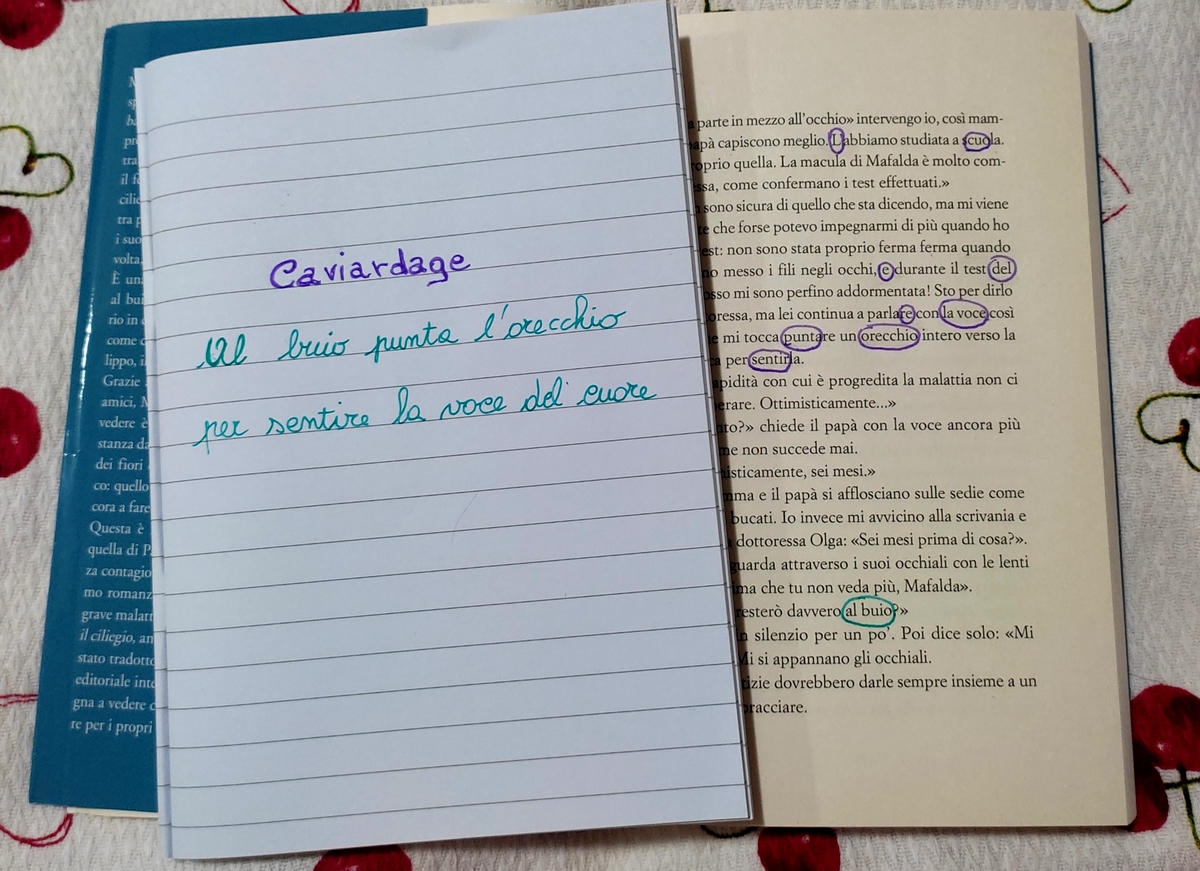 M
sp
ba
pr
tra
il f
cilie
tra p
i suo
volta.
È un
al bui
rio in
come c
lippo, i
Grazie
amici, M
vedere è
stanza da
dei fiori
co: quello
cora a fare
Questa è
quella di P
za contagio
mo romanz
grave malatt
il ciliegio, an
stato tradotto
editoriale inte
gna a vedere c
re per i propri
Caviardage
Al buio punta l'orecchio
per sentire la voce del cuore
a parte in mezzo all'occhio» intervengo io, così mam-
apà capiscono meglio. L'abbiamo studiata a scuola.
oprio quella. La macula di Mafalda è molto com-
ssa, come confermano i test effettuati.»
sono sicura di quello che sta dicendo, ma mi viene
e che forse potevo impegnarmi di più quando ho
est: non sono stata proprio ferma ferma quando
no messo i fili negli occhi, e durante il test del
osso mi sono perfino addormentata! Sto per dirlo
oressa, ma lei continua a parlare con la voce così
e mi tocca puntare un orecchio intero verso la
a per sentirla.
apidità con cui è progredita la malattia non ci
erare. Ottimisticamente...»
nto?» chiede il papà con la voce ancora più
me non succede mai.
isticamente, sei mesi.»
mma e il papà si afflosciano sulle sedie come
bucati. Io invece mi avvicino alla scrivania e
dottoressa Olga: «Sei mesi prima di cosa?».
guarda attraverso i suoi occhiali con le lenti
ima che tu non veda più, Mafalda».
esterò davvero al buio?»
n silenzio per un po'. Poi dice solo: «Mi
Mi si appannano gli occhiali.
tizie dovrebbero darle sempre insieme a un
bracciare.